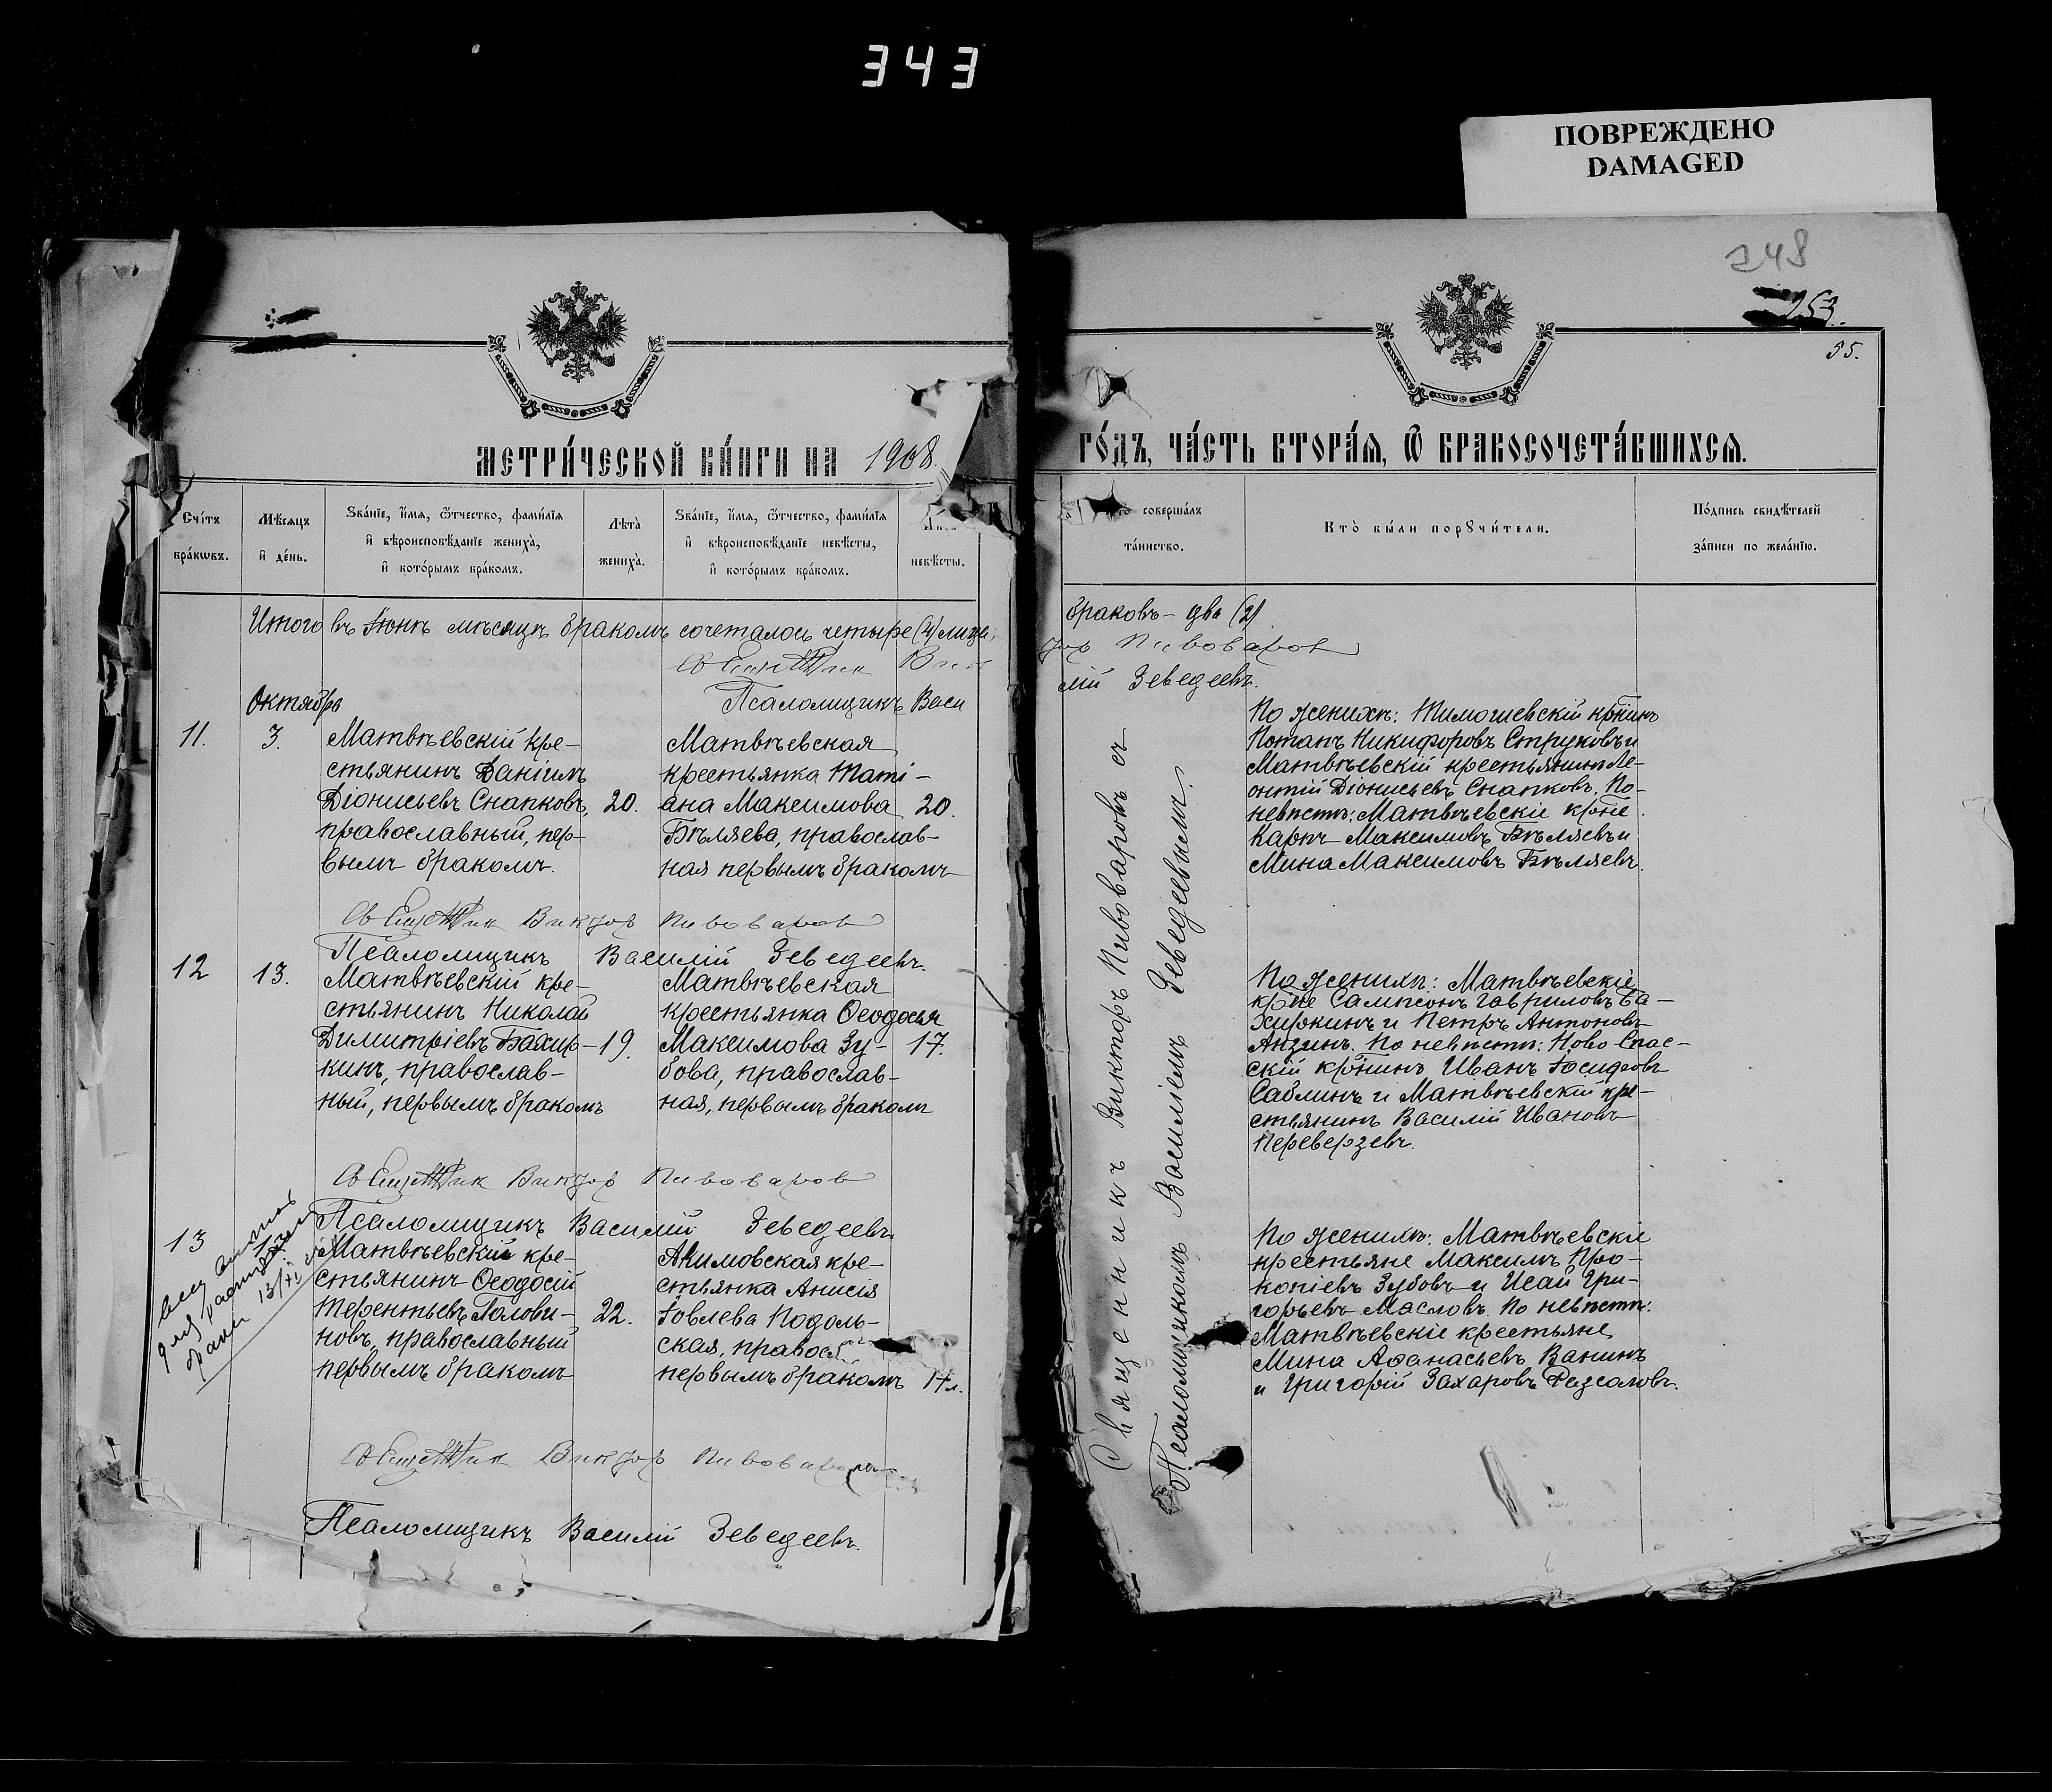 343
ПОВРЕЖДЕНО
DAMAGED
248
253.
55.
МЕТРИ́ЧЕСКОЙ КНИ́ГИ НА 1908.
ГО́ДЪ, ЧА́СТЬ ВТОРА́Я, Ѿ БРАКОСОЧЕТА́ВШИХСЯ.
Счі́тъ бра́кѡвъ.
Мѣ́сяцъ и҆ де́нь.
Ѕва́нїе, и҆́мя, ѻ҆́тчество, фами́лїя
и҆ вѣроисповѣ́данїе жениха̀,
и҆ кото́рымъ бра́комъ.
Лѣ́та жениха̀.
Ѕва́нїе, и҆́мя, ѻ҆́тчество, фами́лїя
и҆ вѣроисповѣ́данїе невѣ́сты,
и҆ кото́рымъ бра́комъ.
невѣ́сты.
соверша́лъ
та́инство.
Кто̀ бы́ли порꙋчи́тели.
По́дпись свидѣ́телей
за́писи по жела́нїю.
Итого въ Іюнѣ мѣсяцѣ бракомъ сочеталось четыре (4) лица;
браковъ – два (2)
Священник Вик
тор Пивоваров
Псаломщикъ Васи
лій Зеведеевъ.
Октябрь
11.
3.
Матвѣевскій кре-
стьянинъ Даніилъ
Діонисьевъ Снапковъ,
православный, пер-
вымъ бракомъ.
20.
Матвѣевская
крестьянка Таті-
ана Максимова
Бѣляева, православ-
ная первымъ бракомъ
20.
По женихѣ: Тимошевскій кр̃нинъ
Потапъ Никифоровъ Струковъ и
Матвѣевскій крестьянинъ Ле-
онтій Діонисьевъ Снапковъ. По
невѣстѣ: Матвѣевскіе кр̃не
Карпъ Максимовъ Бѣляевъ и
Мина Максимовъ Бѣляевъ.
Священник Виктор Пивоваров
Псаломщикъ Василій Зеведеевъ.
12
13.
Матвѣевскій кре-
стьянинъ Николай
Димитріевъ Бахир-
кинъ, православ-
ный, первымъ бракомъ
19.
Матвѣевская
крестьянка Ѳеодосья
Максимова Зу-
бова, православ-
ная, первымъ бракомъ
17.
По женихѣ: Матвѣевскіе
кр̃не Сампсонъ Гавриловъ Ба-
хиркинъ и Петръ Антоновъ
Анзинъ. По невѣстѣ: Ново Спас-
скій кр̃нинъ Иванъ Іосифовъ
Саблинъ и Матвѣевскій кре-
стьянинъ Василій Ивановъ
Переверзевъ.
Священник Виктор Пивоваров
Псаломщикъ Василій Зеведеевъ
13
13/XI
Матвѣевскій кре-
стьянинъ Ѳеодосій
Терентьевъ Голови-
новъ, православный
первымъ бракомъ
22.
Акимовская кре-
стьянка Анисія
Іовлева Подоль-
ская, правосл
первымъ бракомъ
17 л.
По женихѣ: Матвѣевскіе
крестьяне Максимъ Про-
копіевъ Зубовъ и Исай Гри-
горьевъ Масловъ. По невѣстѣ:
Матвѣевскіе крестьяне
Мина Аѳанасьевъ Ванинъ
и Григорій Захаровъ
Священник Виктор Пивоваров
Псаломщикъ Василій Зеведеевъ.
Священникъ Викторъ Пивоваровъ съ
Псаломщикомъ Василіемъ Зеведеевымъ.